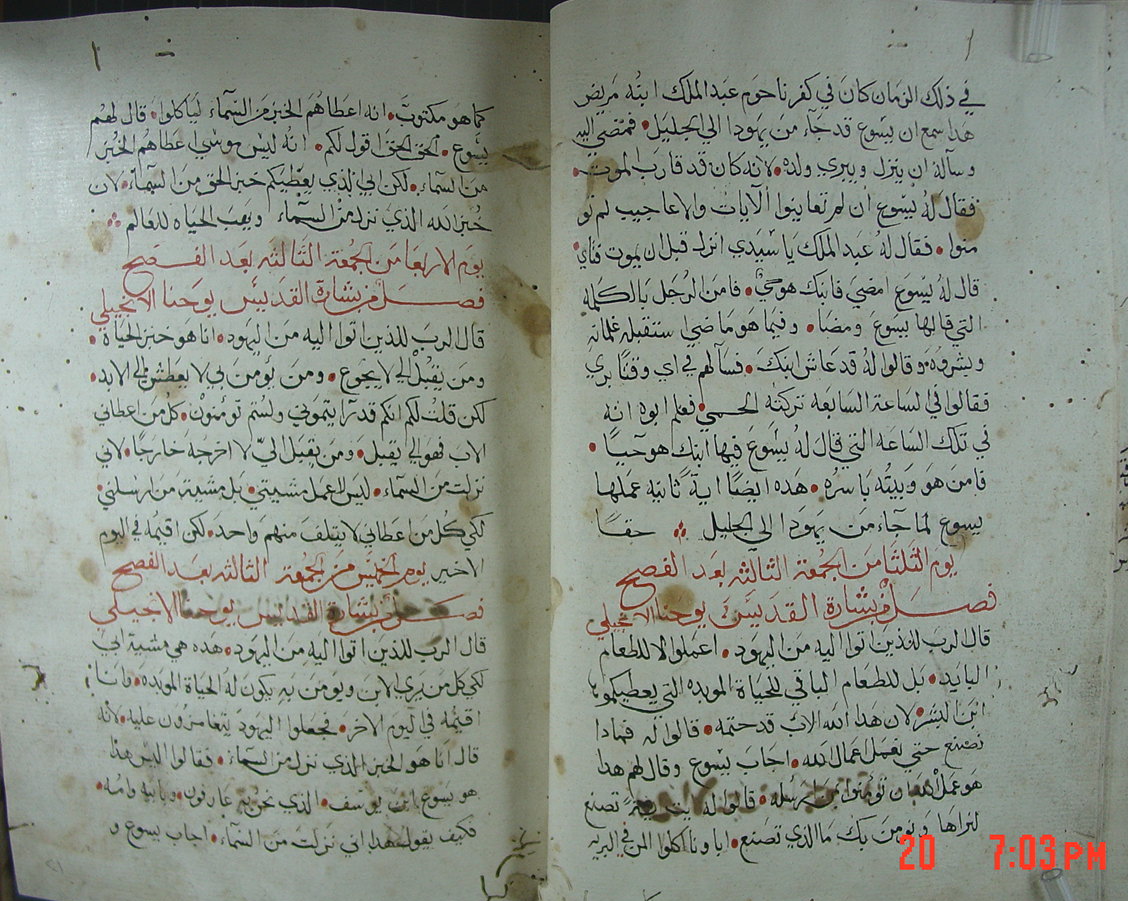 في ذلك الزمان كان في كفرناحوم عبد الملك ابنه مريض
هذا سمع ان يسوع قد جاء من يهودا الي الجليل • فمضي اليه
وسآله ان ينزل ويبري ولده • لانه كان قد قارب الموت •
فقال له يسوع ان لم تعاينوا الآيات والاعاجيب لم تو
منوا • فقال له عبد الملك يا سيدي انزل قبل ان يموت فتاي •
قال له يسوع امضي فابنك هو حي • فامن الرجل بالكلمه
التي قالها يسوع ومضا • وفيما هو ماضي ستقبله غلمانه
وبشروه وقالوا له قد عاش ابنك • فسآلهم في اي وقتًا بري
فقالوا في الساعة السابعه تركته الحمي • فعلم ابوه انه
في تلك الساعه التي قال له يسوع فيها ابنك هو حيًا •
فامن هو وبيته باسره • هذه ايضًا اية ثانيه عملها
يسوع لما جاء من يهودا الي الجليل حقا
يوم الثلثا من الجمعة الثالثه بعد الفصح
فصل من بشارة القديس يوحنا الانجيلي
قال الرب للذين اتوا اليه من اليهود • اعملوا لا للطعام
البايد • بل للطعام الباقي للحياة الموبده التي يعطيكموا
ابن البشر • لان هذا الله الاب قد ختمه • قالوا له فماذا
نصنع حتي نعمل اعمال الله • اجاب يسوع وقال لهم هذا
هو عمل الله ان تومنوا بمن ارسله • قالوا له تصنع
لنراها ونومن بك ما الذي تصنع • اباونا اكلوا المن في البريه
كما هو مكتوب • انه اعطاهم الخبز من السماء لياكلوا • قال لهم
يسوع • الحق الحق اقول لكم • انه ليس موسي اعطاهم الخبز
من السماء • لكن ابي الذي يعطيكم خبز الحق من السماء • لان
خبز الله الذي نزل من السماء ويهب الحياه للعالم
يوم الاربعا من الجمعة الثالثه بعد الفصح
فصل من بشارة القديس يوحنا الانجيلي
قال الرب للذين اتوا اليه من اليهود • انا هو خبز الحياة •
ومن يقبل الي لا يجوع • ومن يومن بي لا يعطش الي الابد •
لكن قلت لكم انكم قد رآيتموني ولستم تومنون • كل من اعطاني
الاب فهو الي يقبل • ومن يقبل اليّ لا اخرجه خارجًا • لاني
نزلت من السماء • ليس اعمل مشيتي • بل مشية من ارسلني •
لكي كل من اعطاني لا يتلف منهم واحد • لكن اقيمه في اليوم
الاخير يوم الخميس من الجمعة الثالثه بعد الفصح
فصل من بشارة القديس يوحنا الانجيلي
قال الرب للذين اتوا اليه من اليهود • هذه هي مشية ابي
لكي كل من يري الابن ويومن به يكون له الحياة الموبده • وانا
اقيمه في اليوم الاخر • فجعلوا اليهود يتقامرون عليه • لانه
قال انا هو الخبز الذي نزل من السماء • فقالوا اليس هذا
هو يسوع ابن يوسف • الذي نحن عارفون بابيه وامه •
فكيف يقول هذا اني نزلت من السماء • اجاب يسوع و
20 7:03 PM